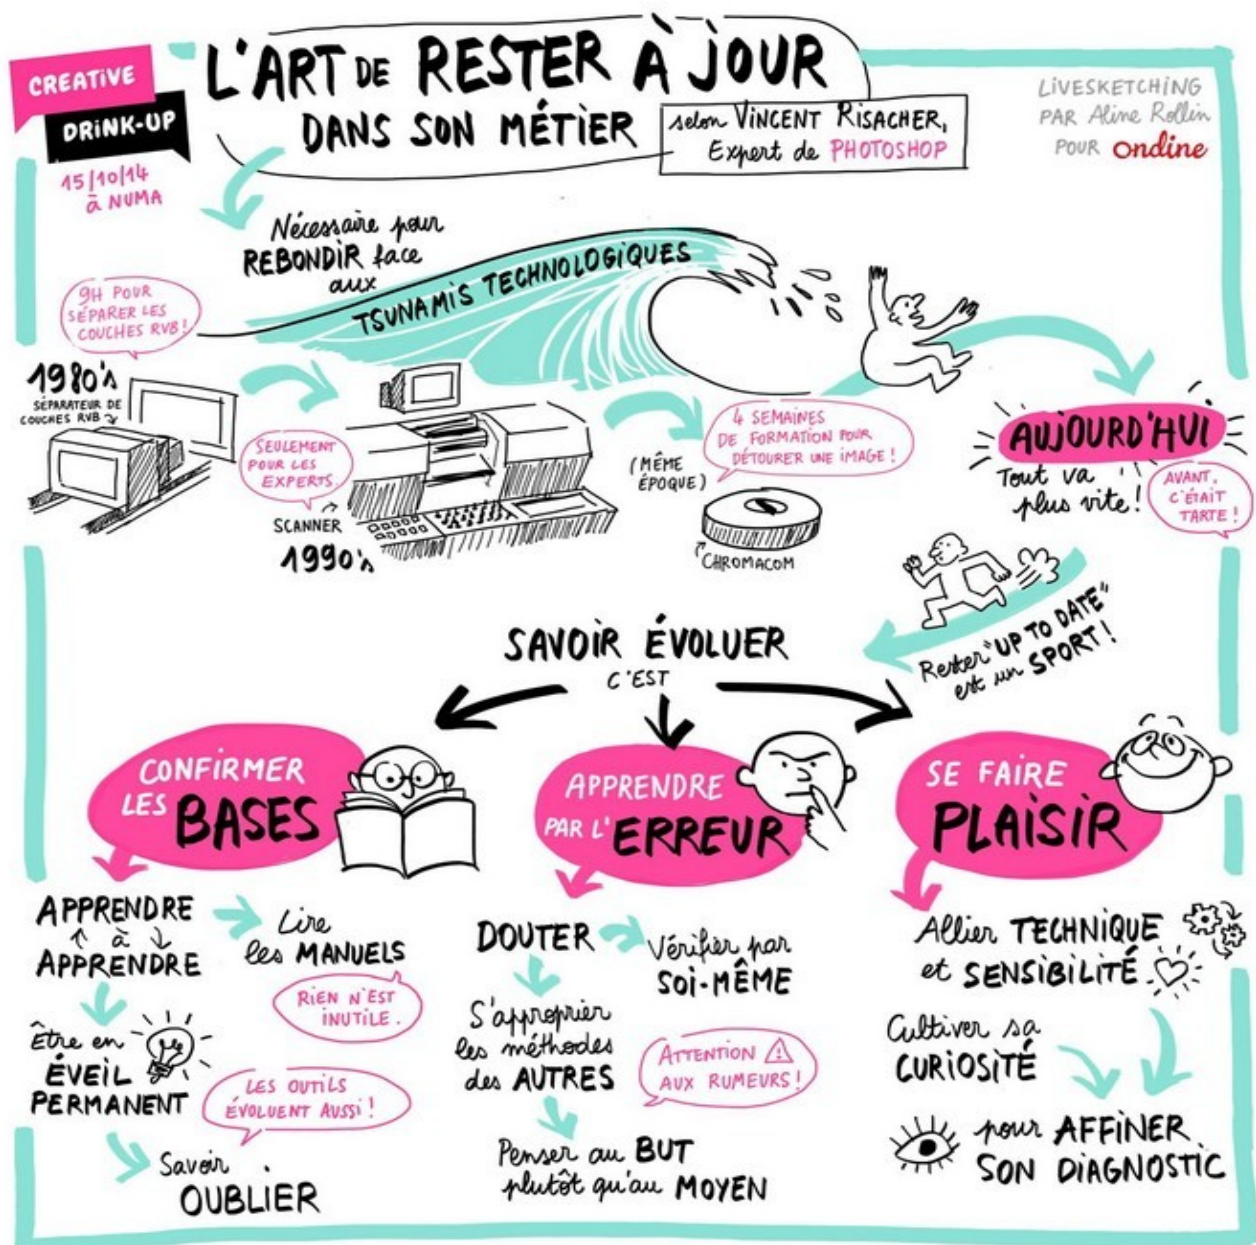 CREATIVE
DRINK-UP
15/10/14
à NUMA
L'ART DE RESTER À JOUR
DANS SON MÉTIER
selon VINCENT RISACHER,
Expert de PHOTOSHOP
LIVESKETCHING
PAR Aline Rollin
POUR ondine
Nécessaire pour
REBONDIR face
aux
TSUNAMIS TECHNOLOGIQUES
9H POUR
SÉPARER LES
COUCHES RVB !
1980's
SÉPARATEUR DE
COUCHES RVB
SEULEMENT
POUR LES
EXPERTS.
SCANNER
1990's
(MÊME
ÉPOQUE)
4 SEMAINES
DE FORMATION POUR
DÉTOURER UNE IMAGE !
CHROMACOM
AUJOURD'HUI
Tout va
plus vite !
AVANT,
C'ÉTAIT
TARTE !
Rester "UP TO DATE"
est un SPORT !
SAVOIR ÉVOLUER
C'EST
CONFIRMER
LES BASES
APPRENDRE
à
APPRENDRE
Lire
les MANUELS
RIEN N'EST
INUTILE.
Être en
ÉVEIL
PERMANENT
LES OUTILS
ÉVOLUENT AUSSI !
Savoir
OUBLIER
APPRENDRE
PAR L'ERREUR
DOUTER
Vérifier par
SOI-MÊME
S'approprier
les méthodes
des AUTRES
ATTENTION
AUX RUMEURS !
Penser au BUT
plutôt qu'au MOYEN
SE FAIRE
PLAISIR
Allier TECHNIQUE
et SENSIBILITÉ
Cultiver sa
CURIOSITÉ
pour AFFINER
SON DIAGNOSTIC